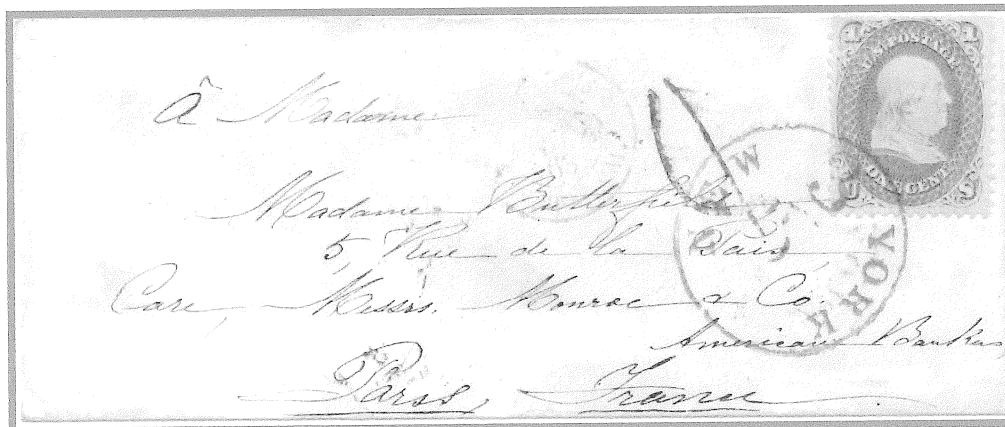 à Madame
Madame Butterfield
5, Rue de la Paix,
Care, Messrs. Monroe & Co.
American Bankers,
Paris, France
U.S. POSTAGE
ONE CENT
1 1
U S
NEW YORK